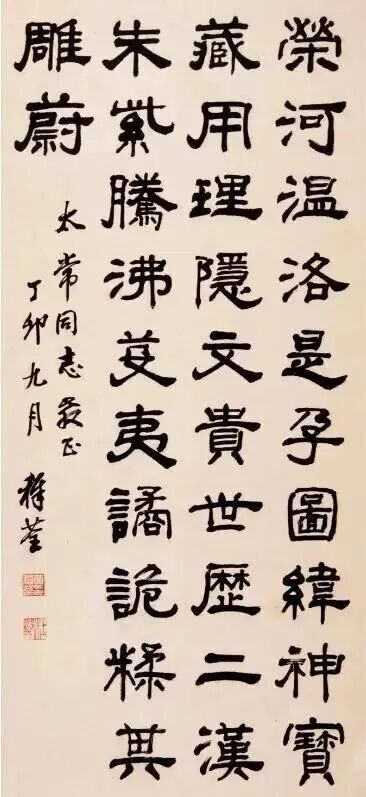 榮河温洛是孕圖緯神寶
藏用理隱文貴世歷二漢
朱紫騰沸芟夷譎詭糅其
雕蔚
太常同志教正
丁卯九月 稚荃